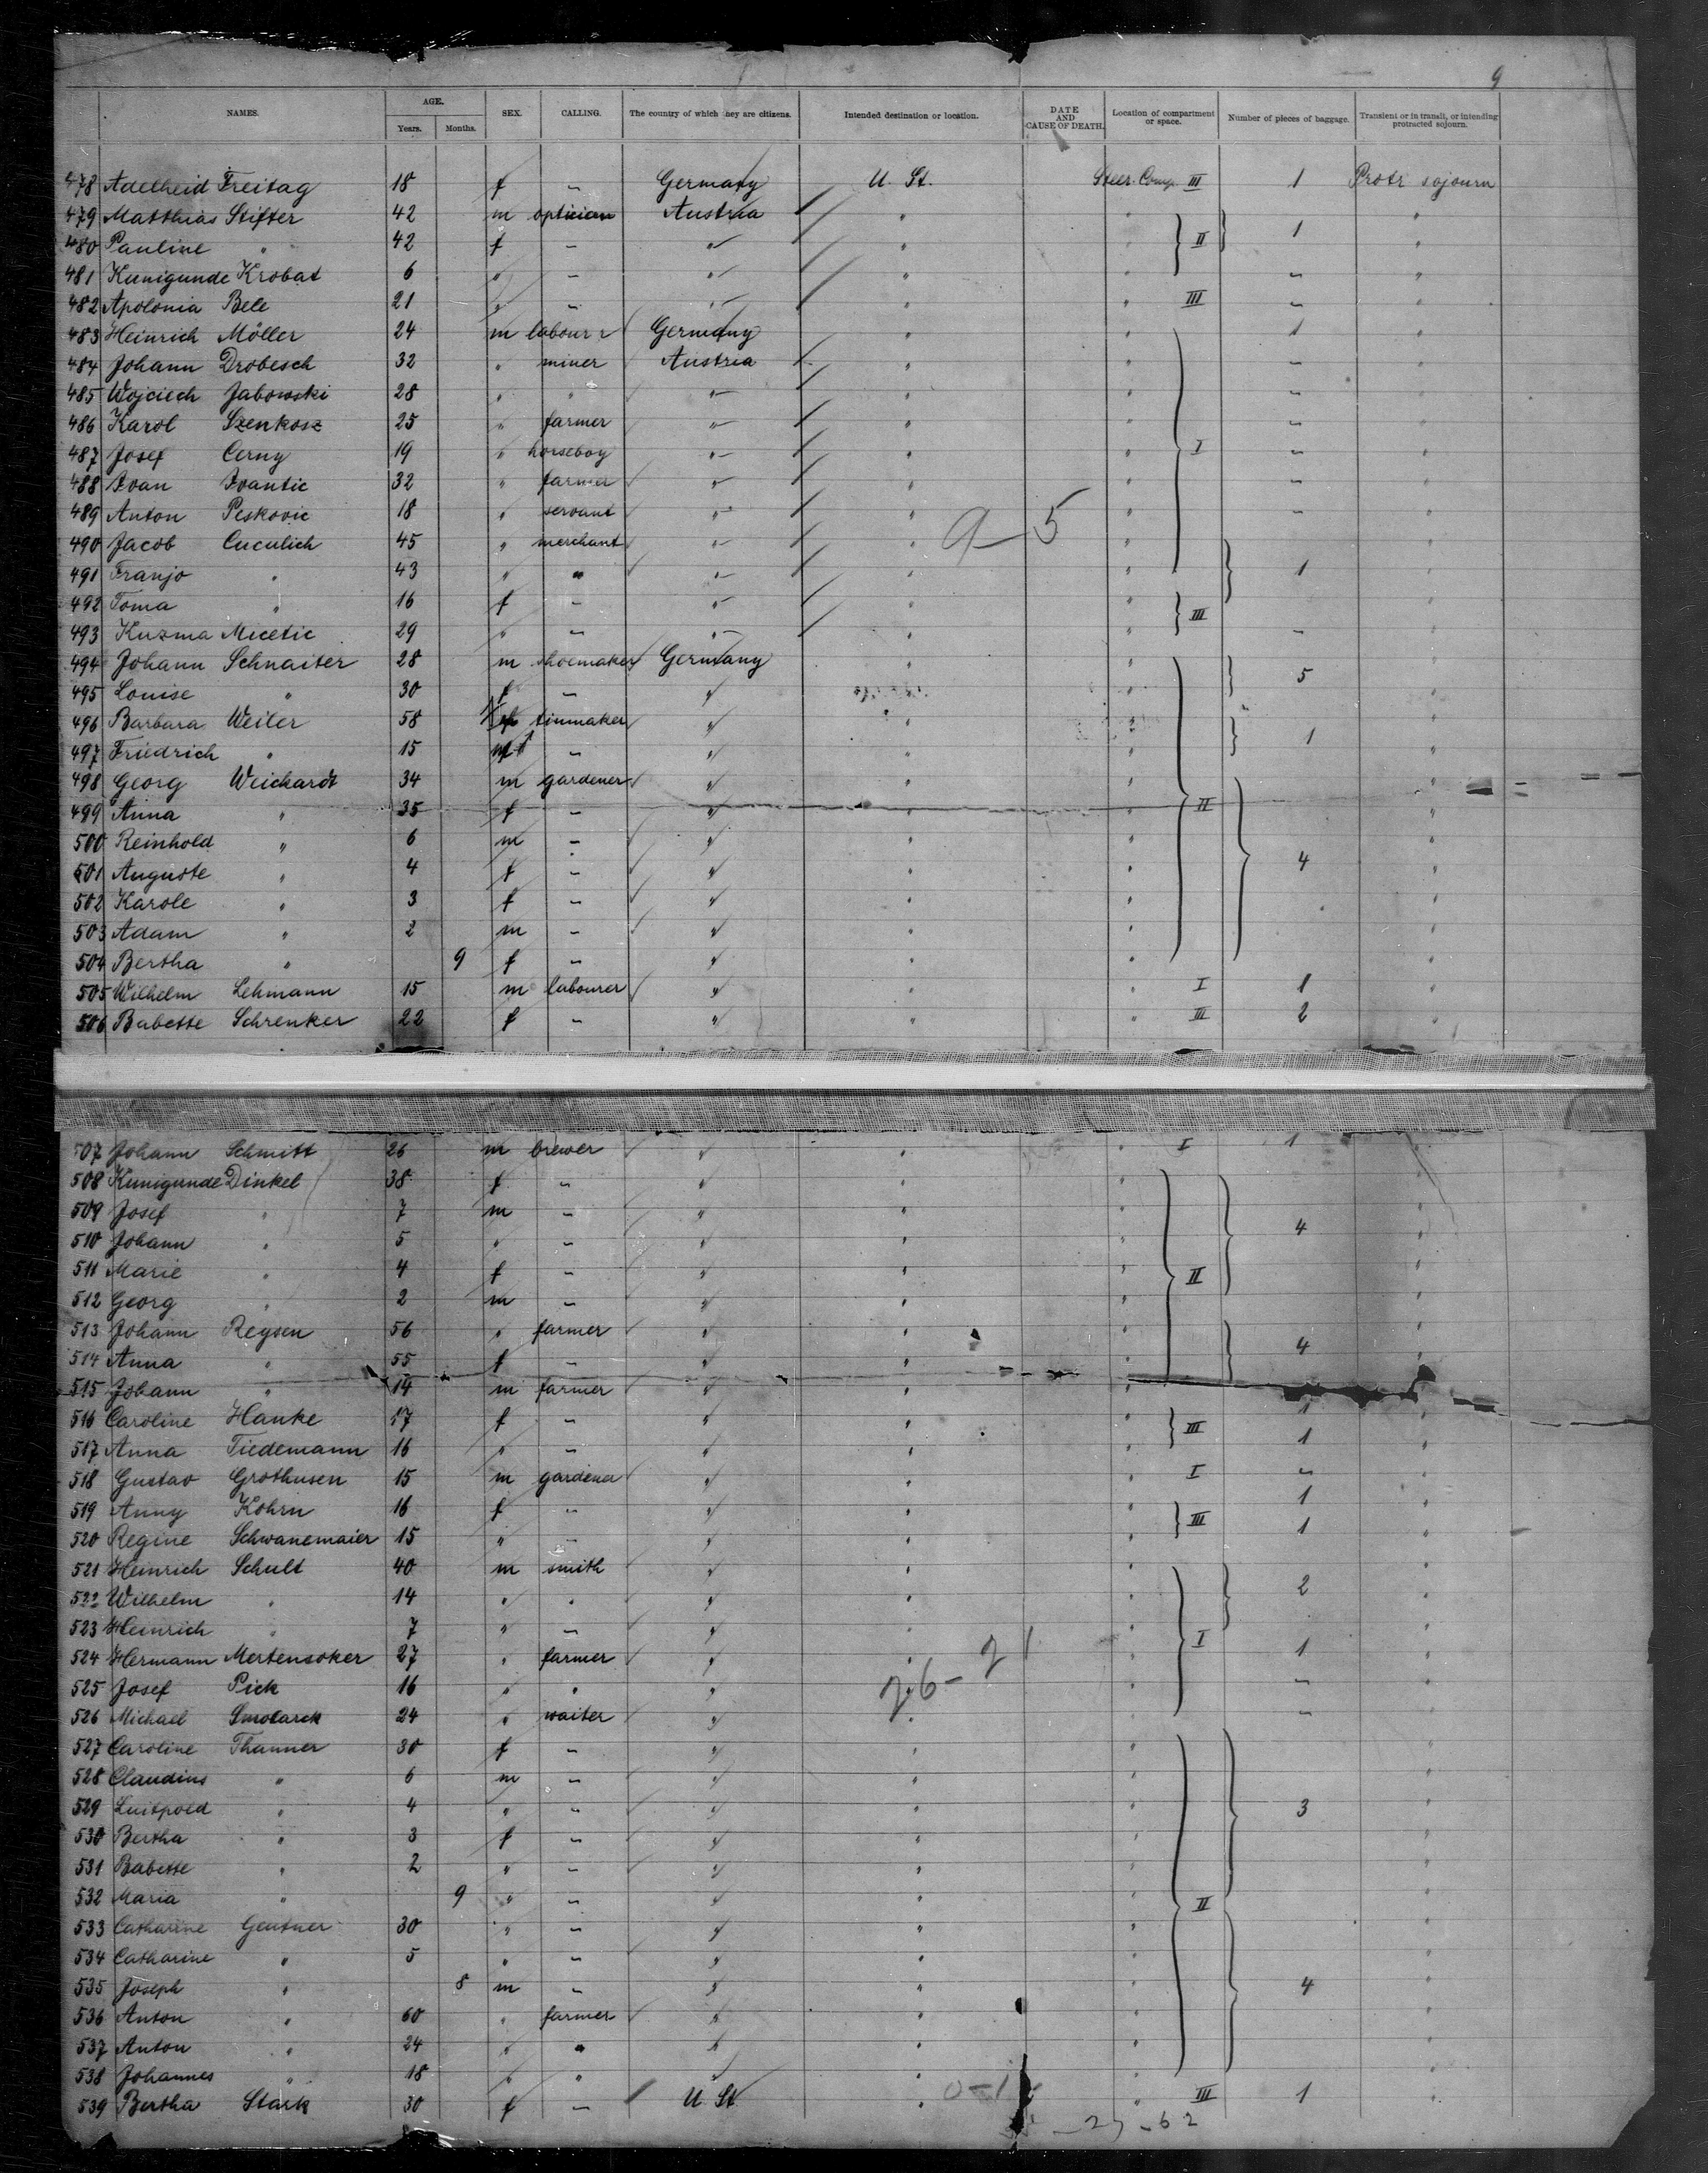 9
NAMES. AGE. Years. Months. SEX. CALLING. The country of which they are citizens. Intended destination or location. DATE AND CAUSE OF DEATH. Location of compartment or space. Number of pieces of baggage. Transient or in transit, or intending protracted sojourn.
478 Adelheid Freitag 18 f – Germany U. St. Steer. Comp. III 1 Protr sojourn
479 Matthias Stifter 42 m optician Austria " " " "
480 Pauline " 42 f – " " " II 1 "
481 Kunigunde Krobat 6 " – " " " – "
482 Apolonia Bele 21 " – " " " III – "
483 Heinrich Möller 24 m labourer Germany " " 1 "
484 Johann Drobesch 32 " miner Austria " " – "
485 Wojciech Jabowski 28 " " " " " – "
486 Karol Szenkosz 25 " farmer " " " – "
487 Josef Cerny 19 " horseboy " " " I – "
488 Ivan Ivantic 32 " farmer " " " – "
489 Anton Peskovic 18 " servant " " " – "
490 Jacob Cuculich 45 " merchant " " 9 – 5 " "
491 Franjo " 43 " " " " " 1 "
492 Toma " 16 f – " " " III "
493 Kuzma Micetic 29 " – " " " – "
494 Johann Schnaiter 28 m shoemaker Germany " " "
495 Louise " 30 f – " " 5 "
496 Barbara Weiler 58 f tinmaker " " " "
497 Friedrich " 15 m – " " " 1 "
498 Georg Weichardt 34 m gardener " " " "
499 Anna " 35 f – " " " II "
500 Reinhold " 6 m – " " " "
501 Auguste " 4 f – " " " 4 "
502 Karole " 3 f – " " " "
503 Adam " 2 m – " " " "
504 Bertha " 9 f – " " " "
505 Wilhelm Lehmann 15 m labourer " " " I 1 "
506 Babette Schrenker 22 f – " " " III 2 "
507 Johann Schmitt 26 m brewer " " " I 1 "
508 Kunigunde Dinkel 38 f – " " " "
509 Josef " 7 m – " " " "
510 Johann " 5 " – " " " 4 "
511 Marie " 4 f – " " " II "
512 Georg " 2 m – " " " "
513 Johann Reysen 56 " farmer " " " "
514 Anna " 55 f – " " " 4 "
515 Johann " 14 m farmer " " " "
516 Caroline Hanke 17 f – " " " III 1 "
517 Anna Tiedemann 16 " – " " " 1 "
518 Gustav Grothusen 15 m gardener " " " I – "
519 Anny Kohrn 16 f – " " " 1 "
520 Regine Schwanemaier 15 " – " " " III 1 "
521 Heinrich Schult 40 m smith " " " "
522 Wilhelm " 14 " " " " " 2 "
523 Heinrich " 7 " – " " " I "
524 Hermann Mertensoker 27 " farmer " " " 1 "
525 Josef Pick 16 " " " " " – "
526 Michael Smolarek 24 " waiter " " " – "
527 Caroline Thanner 30 f – " " " "
528 Claudius " 6 m – " " " "
529 Luitpold " 4 " – " " " 3 "
530 Bertha " 3 f – " " " "
531 Babette " 2 " – " " " "
532 Maria " 9 " – " " " II "
533 Catharine Gentner 30 " – " " " "
534 Catharine " 5 " – " " " "
535 Joseph " 8 m – " " " 4 "
536 Anton " 60 " farmer " " " "
537 Anton " 24 " " " " " "
538 Johannes " 18 " " " " " "
539 Bertha Stark 30 f – U St " 0–1 " III 1 "
– 27 – 62